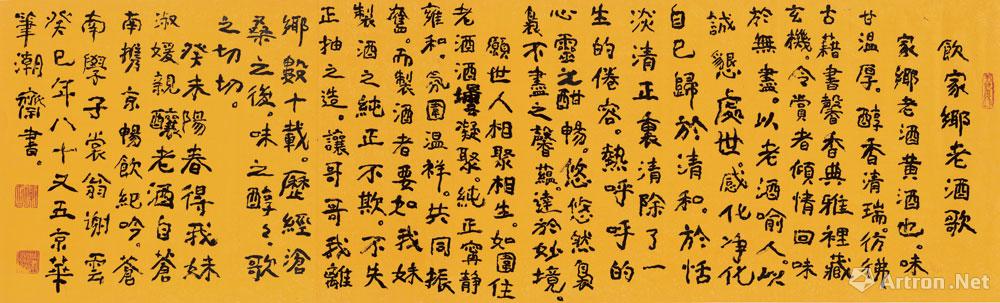 飲家鄉老酒歌
家鄉老酒黃酒也。味
甘溫厚。醇香清瑞。彷彿
古藉書馨香典雅裡藏
玄機。令賞者傾情回味
於無盡。以老酒喻人。以
誠懇處世感化净化
自已歸於清和。於恬
淡清正裏清除了一
生的倦容。熱呼呼的
心靈之酣暢。悠悠然
裊不盡之馨蘊。達於妙境。
願世人相聚相生。如圍住
老酒酒壜凝聚。純正寧靜
雍和。氛圍溫祥。共同振
奮。而製酒者要如我妹
製酒之純正不欺。不失
正抽之造。讓哥哥我離
鄉數十載。歷經滄
桑之後。味之醇之歌
之切切。
癸未陽春得我妹
淑媛親釀老酒自蒼
南攜京暢飲紀吟。蒼
南學子裳翁謝雲
癸巳年八十又五京華
筆潮齋書。
Artron.Net